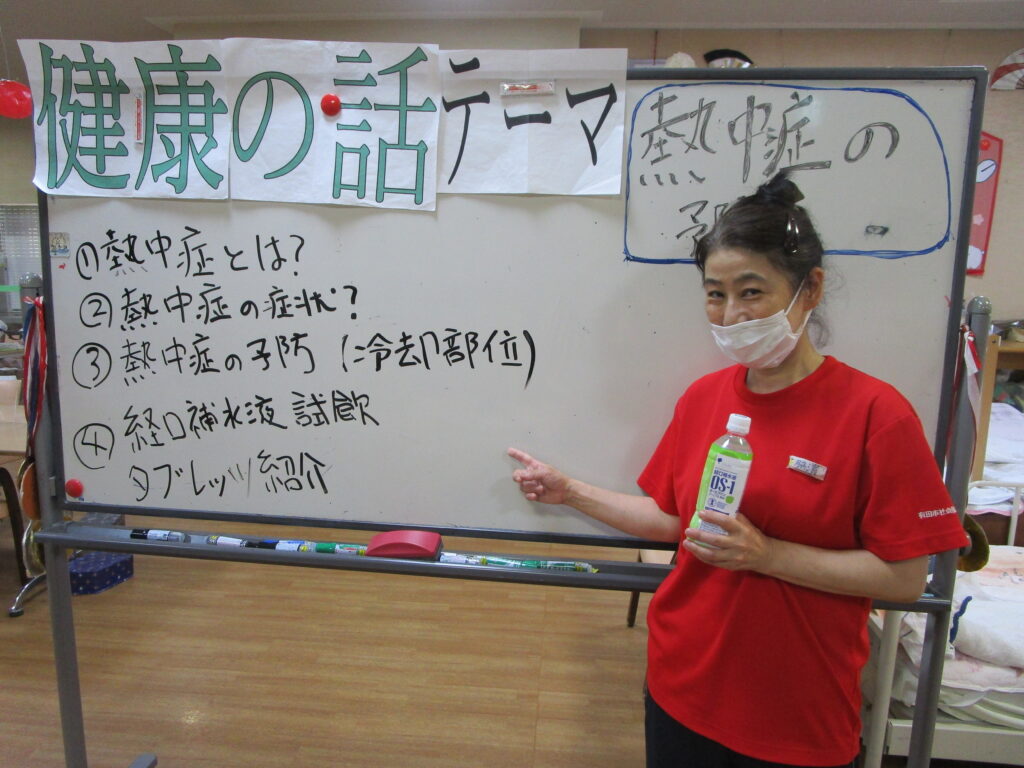 健康の話テーマ
熱中症の
予
①熱中症とは?
②熱中症の症状?
③熱中症の予防(冷却部位)
④経口補水液試飲
タブレッツ紹介
経口補水液
OS-1